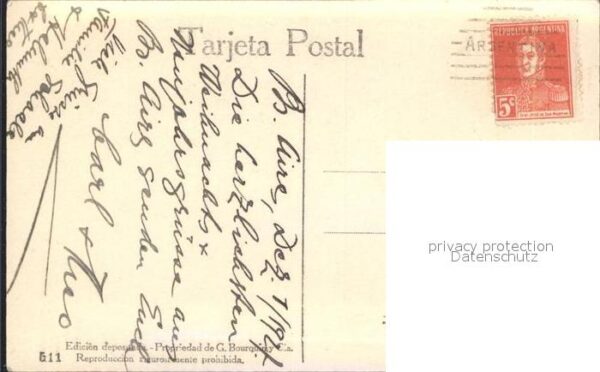 Tarjeta Postal
REPUBLICA ARGENTINA
5c
ARGENTINA
B. Aires, Dez. 1/192
Die herzlichsten
Weihnachts &
Neujahrsgrüsse aus
B. Aires senden Euch
Carl &
Viele Grüsse an
Familie
&
privacy protection
Datenschutz
Edición depositada - Propiedad de G. Bourquin y Cia.
Reproducción rigurosamente prohibida.
511